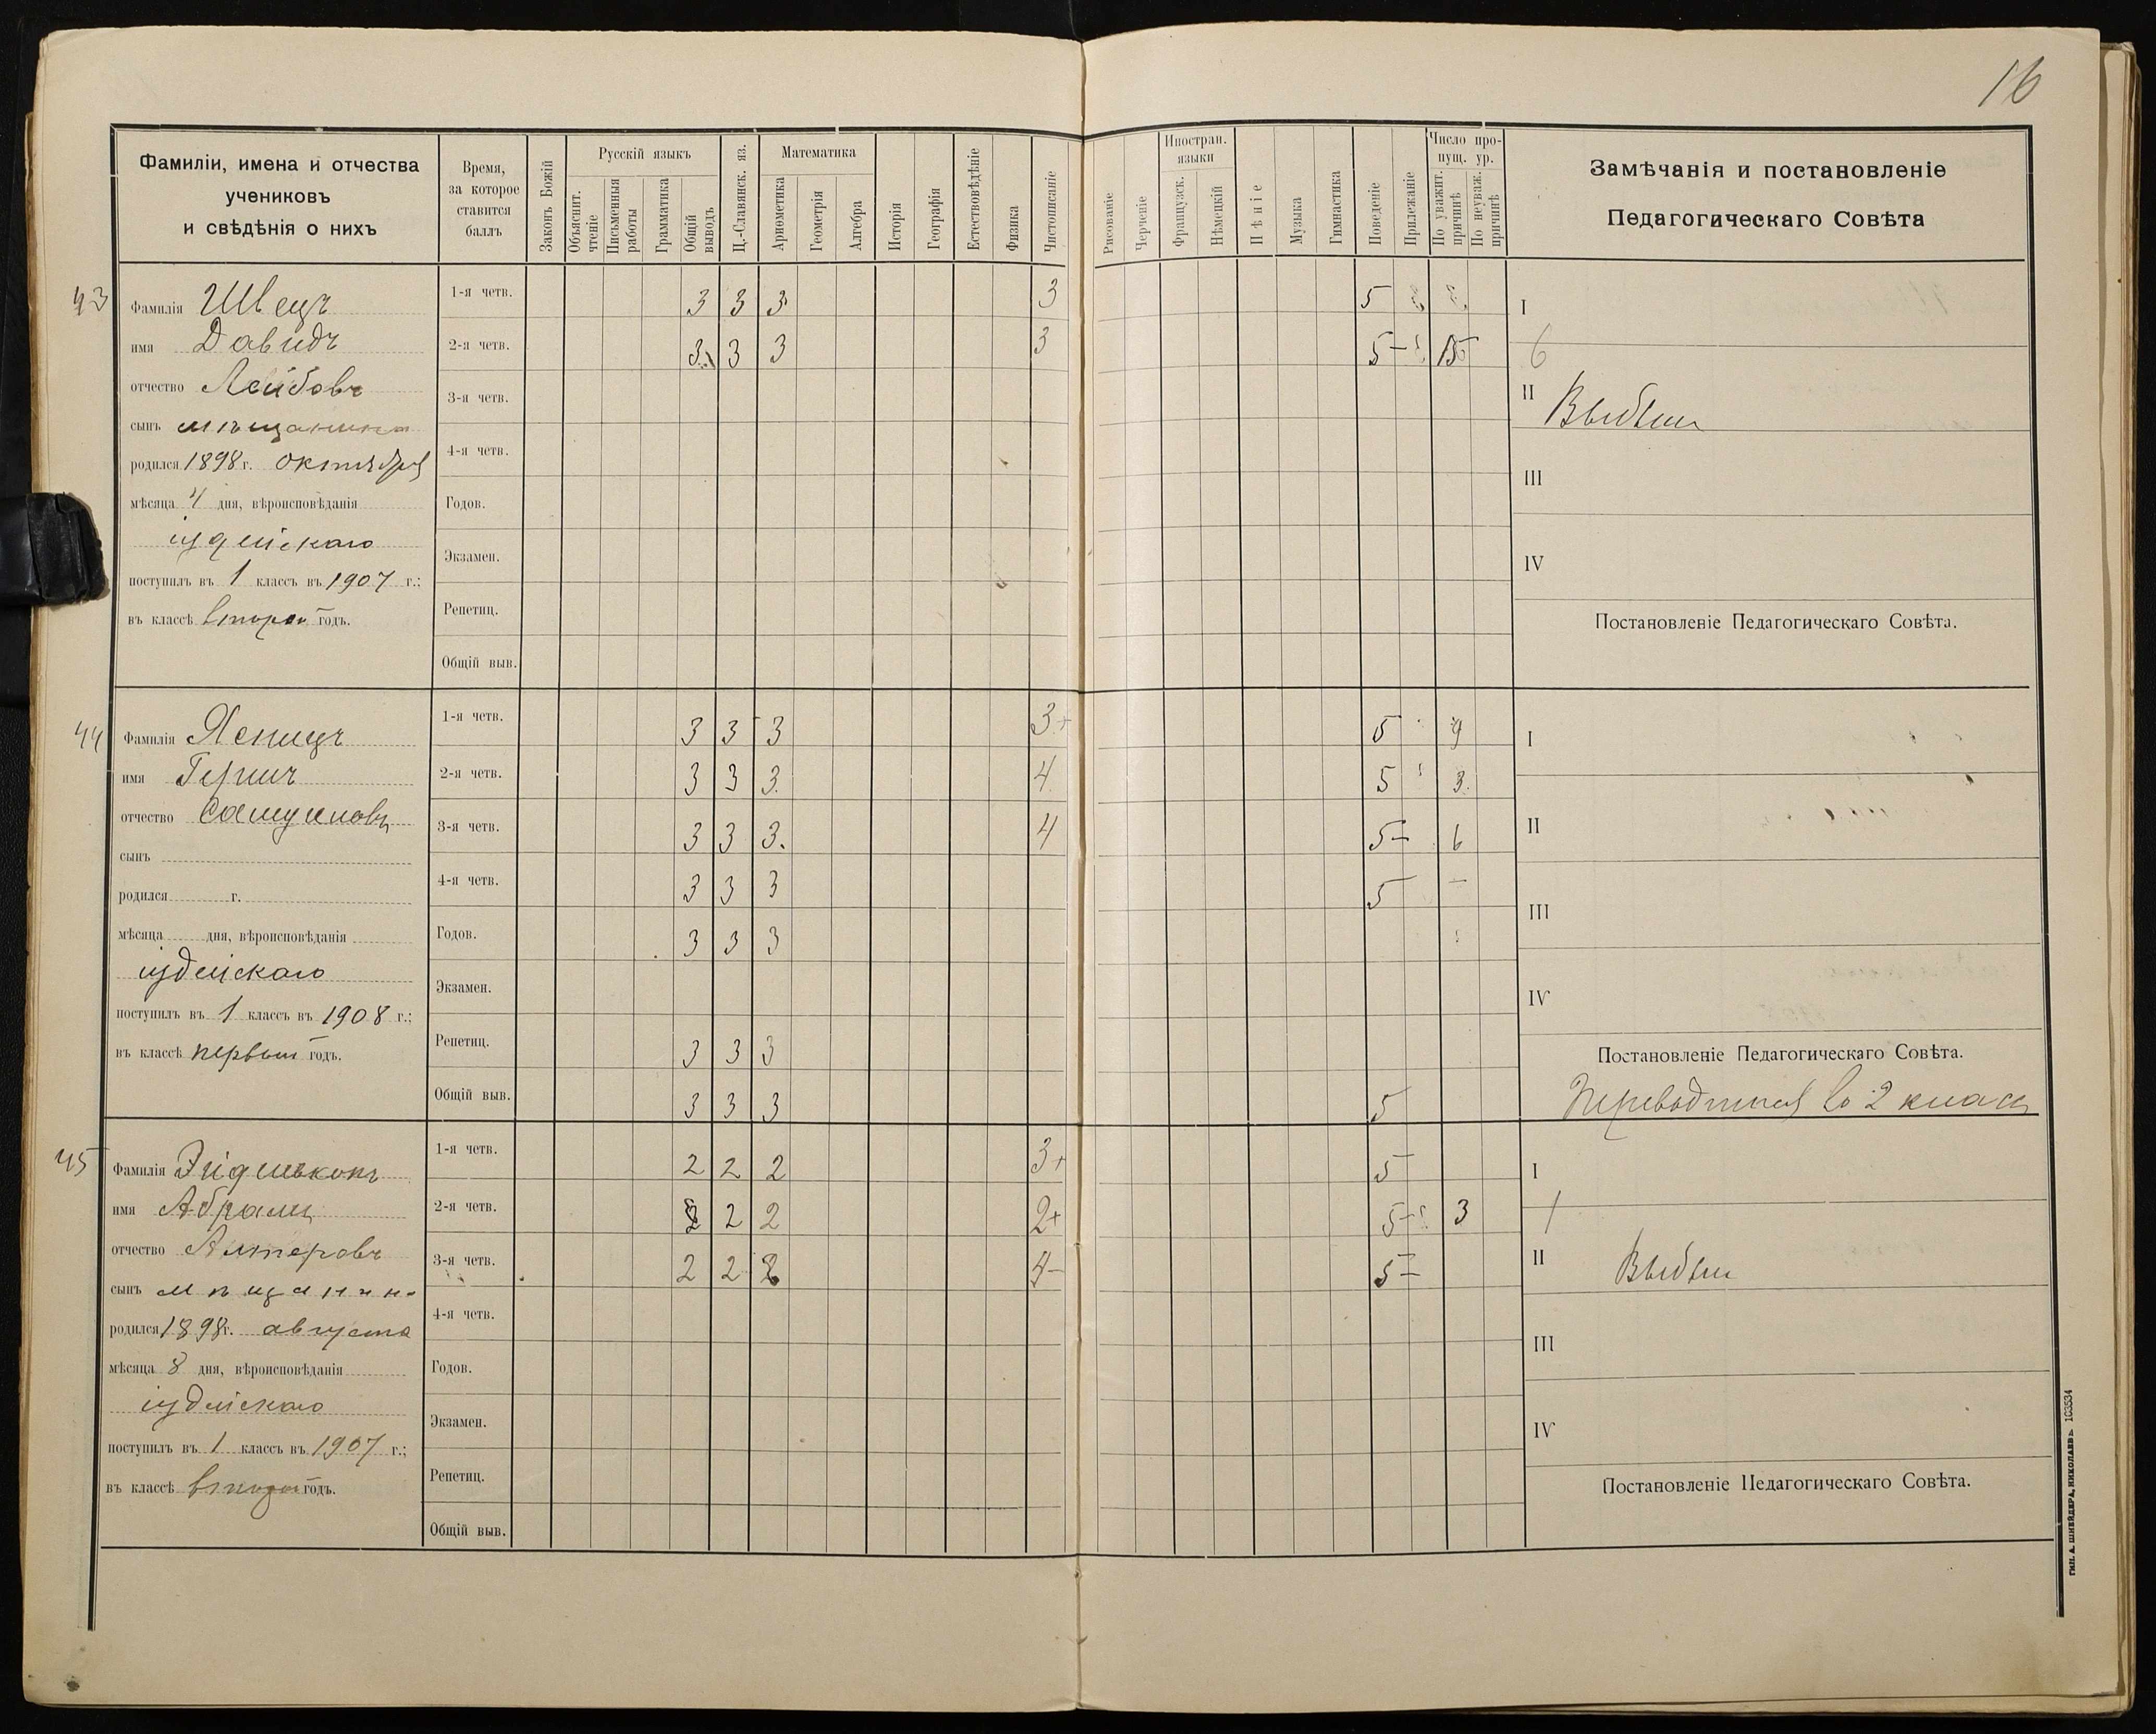 16
Фамиліи, имена и отчества
учениковъ
и свѣдѣнія о нихъ
Время,
за которое
ставится
баллъ
Законъ Божій
Русскій языкъ
Объяснит.
чтеніе
Письменныя
работы
Грамматика
Общій
выводъ
Ц.-Славянск. яз.
Математика
Ариѳметика
Геометрія
Алгебра
Исторія
Географія
Естествовѣдѣніе
Физика
Чистописаніе
Рисованіе
Черченіе
Иностран.
языки
Французск.
Нѣмецкій
Пѣніе
Музыка
Гимнастика
Поведеніе
Прилежаніе
Число про-
пущ. ур.
По уважит.
причинѣ
По неуваж.
причинѣ
Замѣчанія и постановленіе
Педагогическаго Совѣта
43
Фамилія Швецъ
имя Давидъ
отчество Лейбовъ
сынъ мѣщанина
родился 1898 г. октября
мѣсяца 4 дня, вѣроисповѣданія
іудейскаго
поступилъ въ 1 классъ въ 1907 г.;
въ классѣ второй годъ.
1-я четв. 3 3 3 3 5
2-я четв. 3 3 3 3 5- 15 6
3-я четв.
4-я четв.
Годов.
Экзамен.
Репетиц.
Общій выв.
I
II Выбылъ
III
IV
Постановленіе Педагогическаго Совѣта.
44
Фамилія Ясницъ
имя Гершъ
отчество Самуиловъ
сынъ
родился г.
мѣсяца дня, вѣроисповѣданія
іудейскаго
поступилъ въ 1 классъ въ 1908 г.;
въ классѣ первый годъ.
1-я четв. 3 3 3 3+ 5 9
2-я четв. 3 3 3. 4 5 3.
3-я четв. 3 3 3. 4 5- 6
4-я четв. 3 3 3 5 -
Годов. 3 3 3
Экзамен.
Репетиц. 3 3 3
Общій выв. 3 3 3 5
I
II
III
IV
Постановленіе Педагогическаго Совѣта.
Переводится во 2 классъ
45
Фамилія
имя Абрамъ
отчество Алтеровъ
сынъ мѣщанина
родился 1898 г. августа
мѣсяца 8 дня, вѣроисповѣданія
іудейскаго
поступилъ въ 1 классъ въ 1907 г.;
въ классѣ второй годъ.
1-я четв. 2 2 2 3+ 5
2-я четв. 2 2 2 2+ 5- 3 1
3-я четв. 2 2 2 4- 5-
4-я четв.
Годов.
Экзамен.
Репетиц.
Общій выв.
I
II Выбылъ
III
IV
Постановленіе Педагогическаго Совѣта.
ТИП. А. ШНЕЙДЕРА, НИКОЛАЕВЪ. 103534